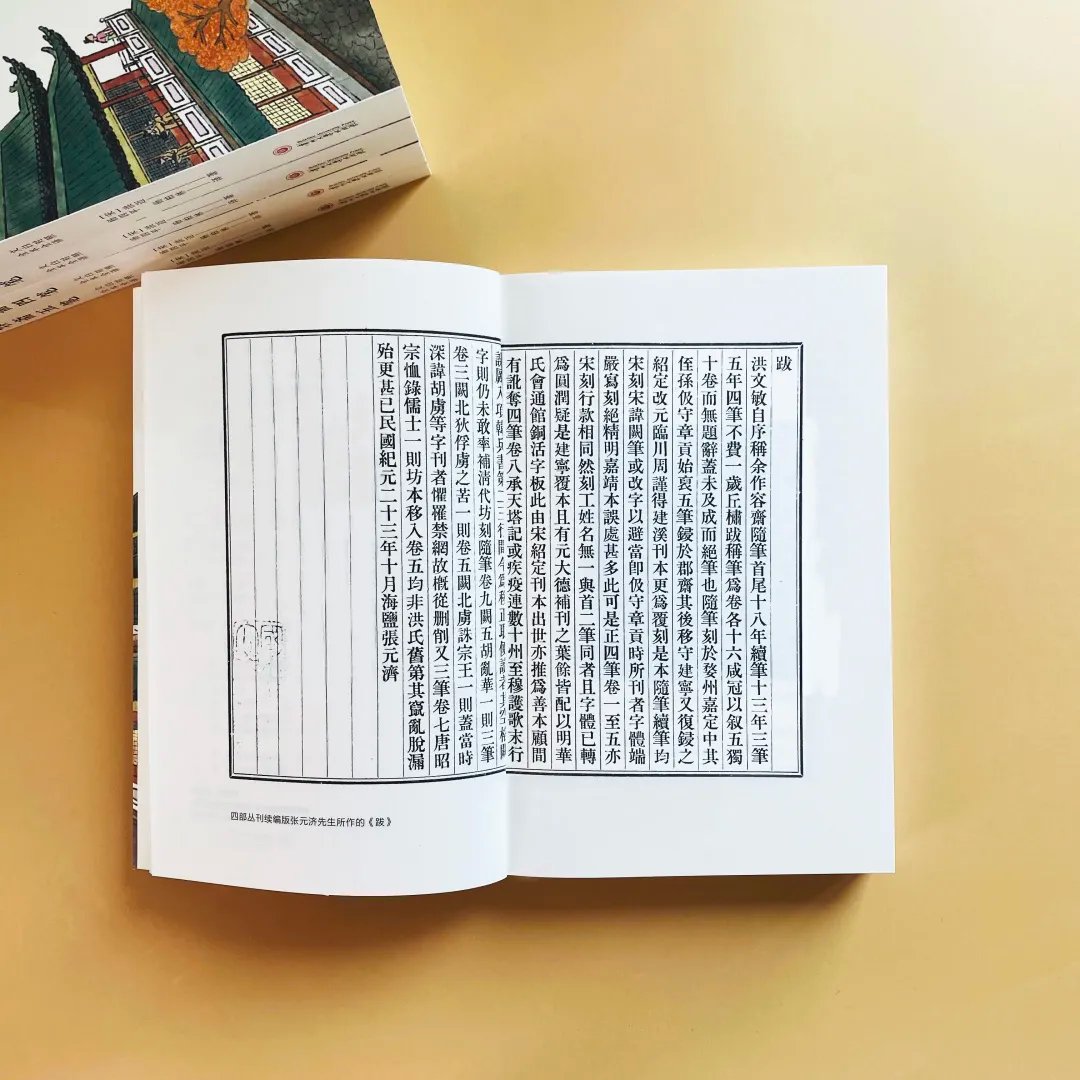 跋
洪文敏自序稱余作容齋隨筆首尾十八年續筆十三年三筆
五年四筆不費一歲丘橚跋稱筆爲卷各十六咸冠以叙五獨
十卷而無題辭蓋未及成而絕筆也隨筆刻於婺州嘉定中其
侄孫伋守章貢始裒五筆鋟於郡齋其後移守建寧又復鋟之
紹定改元臨川周謹得建溪刊本更爲覆刻是本隨筆續筆均
宋刻宋諱闕筆或改字以避當卽伋守章貢時所刊者字體端
嚴寫刻絕精明嘉靖本誤處甚多此可是正四筆卷一至五亦
宋刻行款相同然刻工姓名無一與首二筆同者且字體已轉
爲圓潤疑是建寧覆本且有元大德補刊之葉餘皆配以明華
氏會通館銅活字板此由宋紹定刊本出世亦推爲善本顧間
有訛奪四筆卷八承天塔記或疾疫連數十州至穆護歌末行
字則仍未敢率補淸代坊刻隨筆卷九闕五胡亂華一則三筆
卷三闕北狄俘虜之苦一則卷五闕北虜誅宗王一則蓋當時
深諱胡虜等字刊者懼罹禁網故槪從删削又三筆卷七唐昭
宗恤錄儒士一則坊本移入卷五均非洪氏舊第其竄亂脫漏
殆更甚已民國紀元二十三年十月海鹽張元濟
四部丛刊续编版张元济先生所作的《跋》